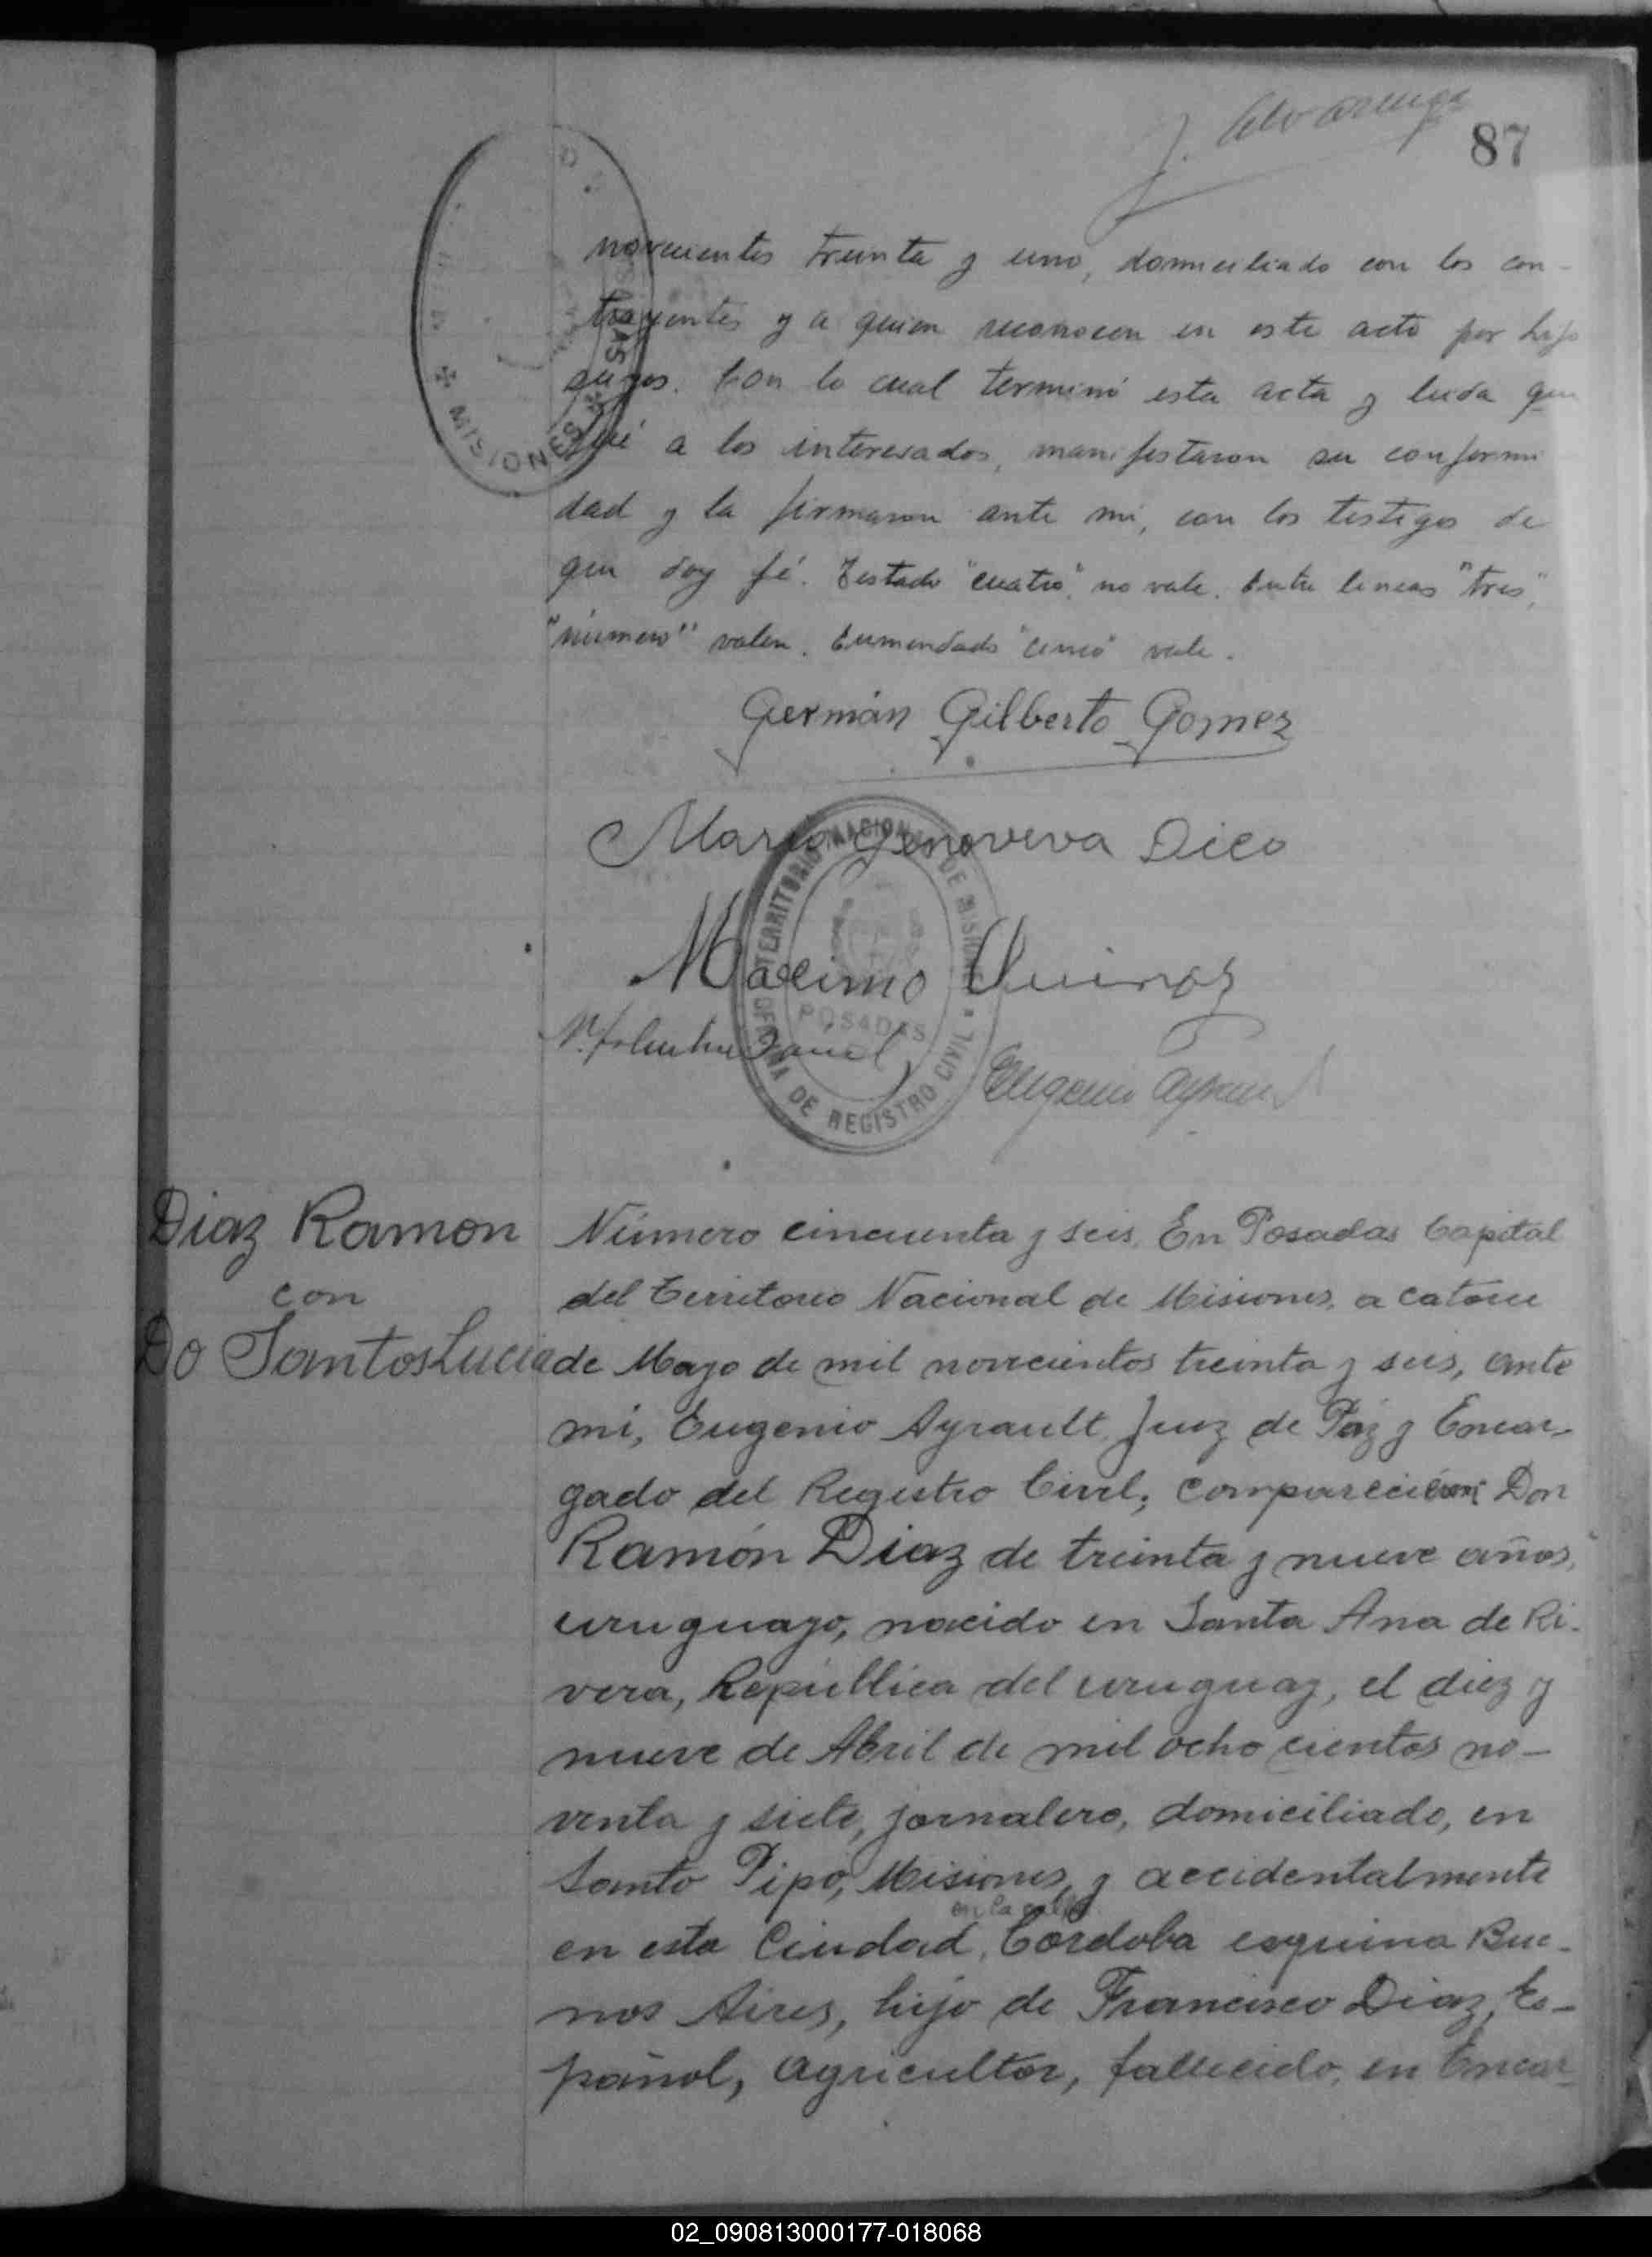 87
novecientos treinta y uno, domiciliado con los con-
trayentes y a quien reconocen en este acto por hijo
suyos. Con lo cual terminó esta acta y leida que
fué a los interesados, manifestaron su conformi
dad y la firmaron ante mi, con los testigos de
que doy fé. Testado "cuatro", no vale. Entre lineas "tres",
"número" valen. Enmendado vale.
Germán Gilberto Gomez
Maria Genoveva Dico
Macimo Quiroz
TERRITORIO NACIONAL DE MISIONES
POSADAS
OFICINA DE REGISTRO CIVIL
MISIONES
Diaz Ramon
con
Do Santos Lucia
Número cincuenta y seis. En Posadas Capital
del Territorio Nacional de Misiones, a catorce
de Mayo de mil novecientos treinta y seis, ante
mi, Eugenio Ayrault, Juez de Páz y Encar-
gado del Registro Civil, comparecieron Don
Ramón Diaz de treinta y nueve años,
uruguayo, nacido en Santa Ana de Ri-
vera, República del uruguay, el diez y
nueve de Abril de mil ocho cientos no-
venta y siete, jornalero, domiciliado, en
Santo Pipo, Misiones, y accidentalmente
en la calle
en esta Ciudad, Córdoba esquina Bue-
nos Aires, hijo de Francisco Diaz, Es-
pañol, agricultor, fallecido, en Encar-
02_090813000177-018068